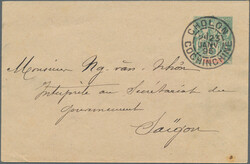 CHOLON
23
JANV
96
COCHINCHINE
Monsieur Ng. văn-Nhơn
Interprète au Secrétariat du
Gouvernement
Saïgon